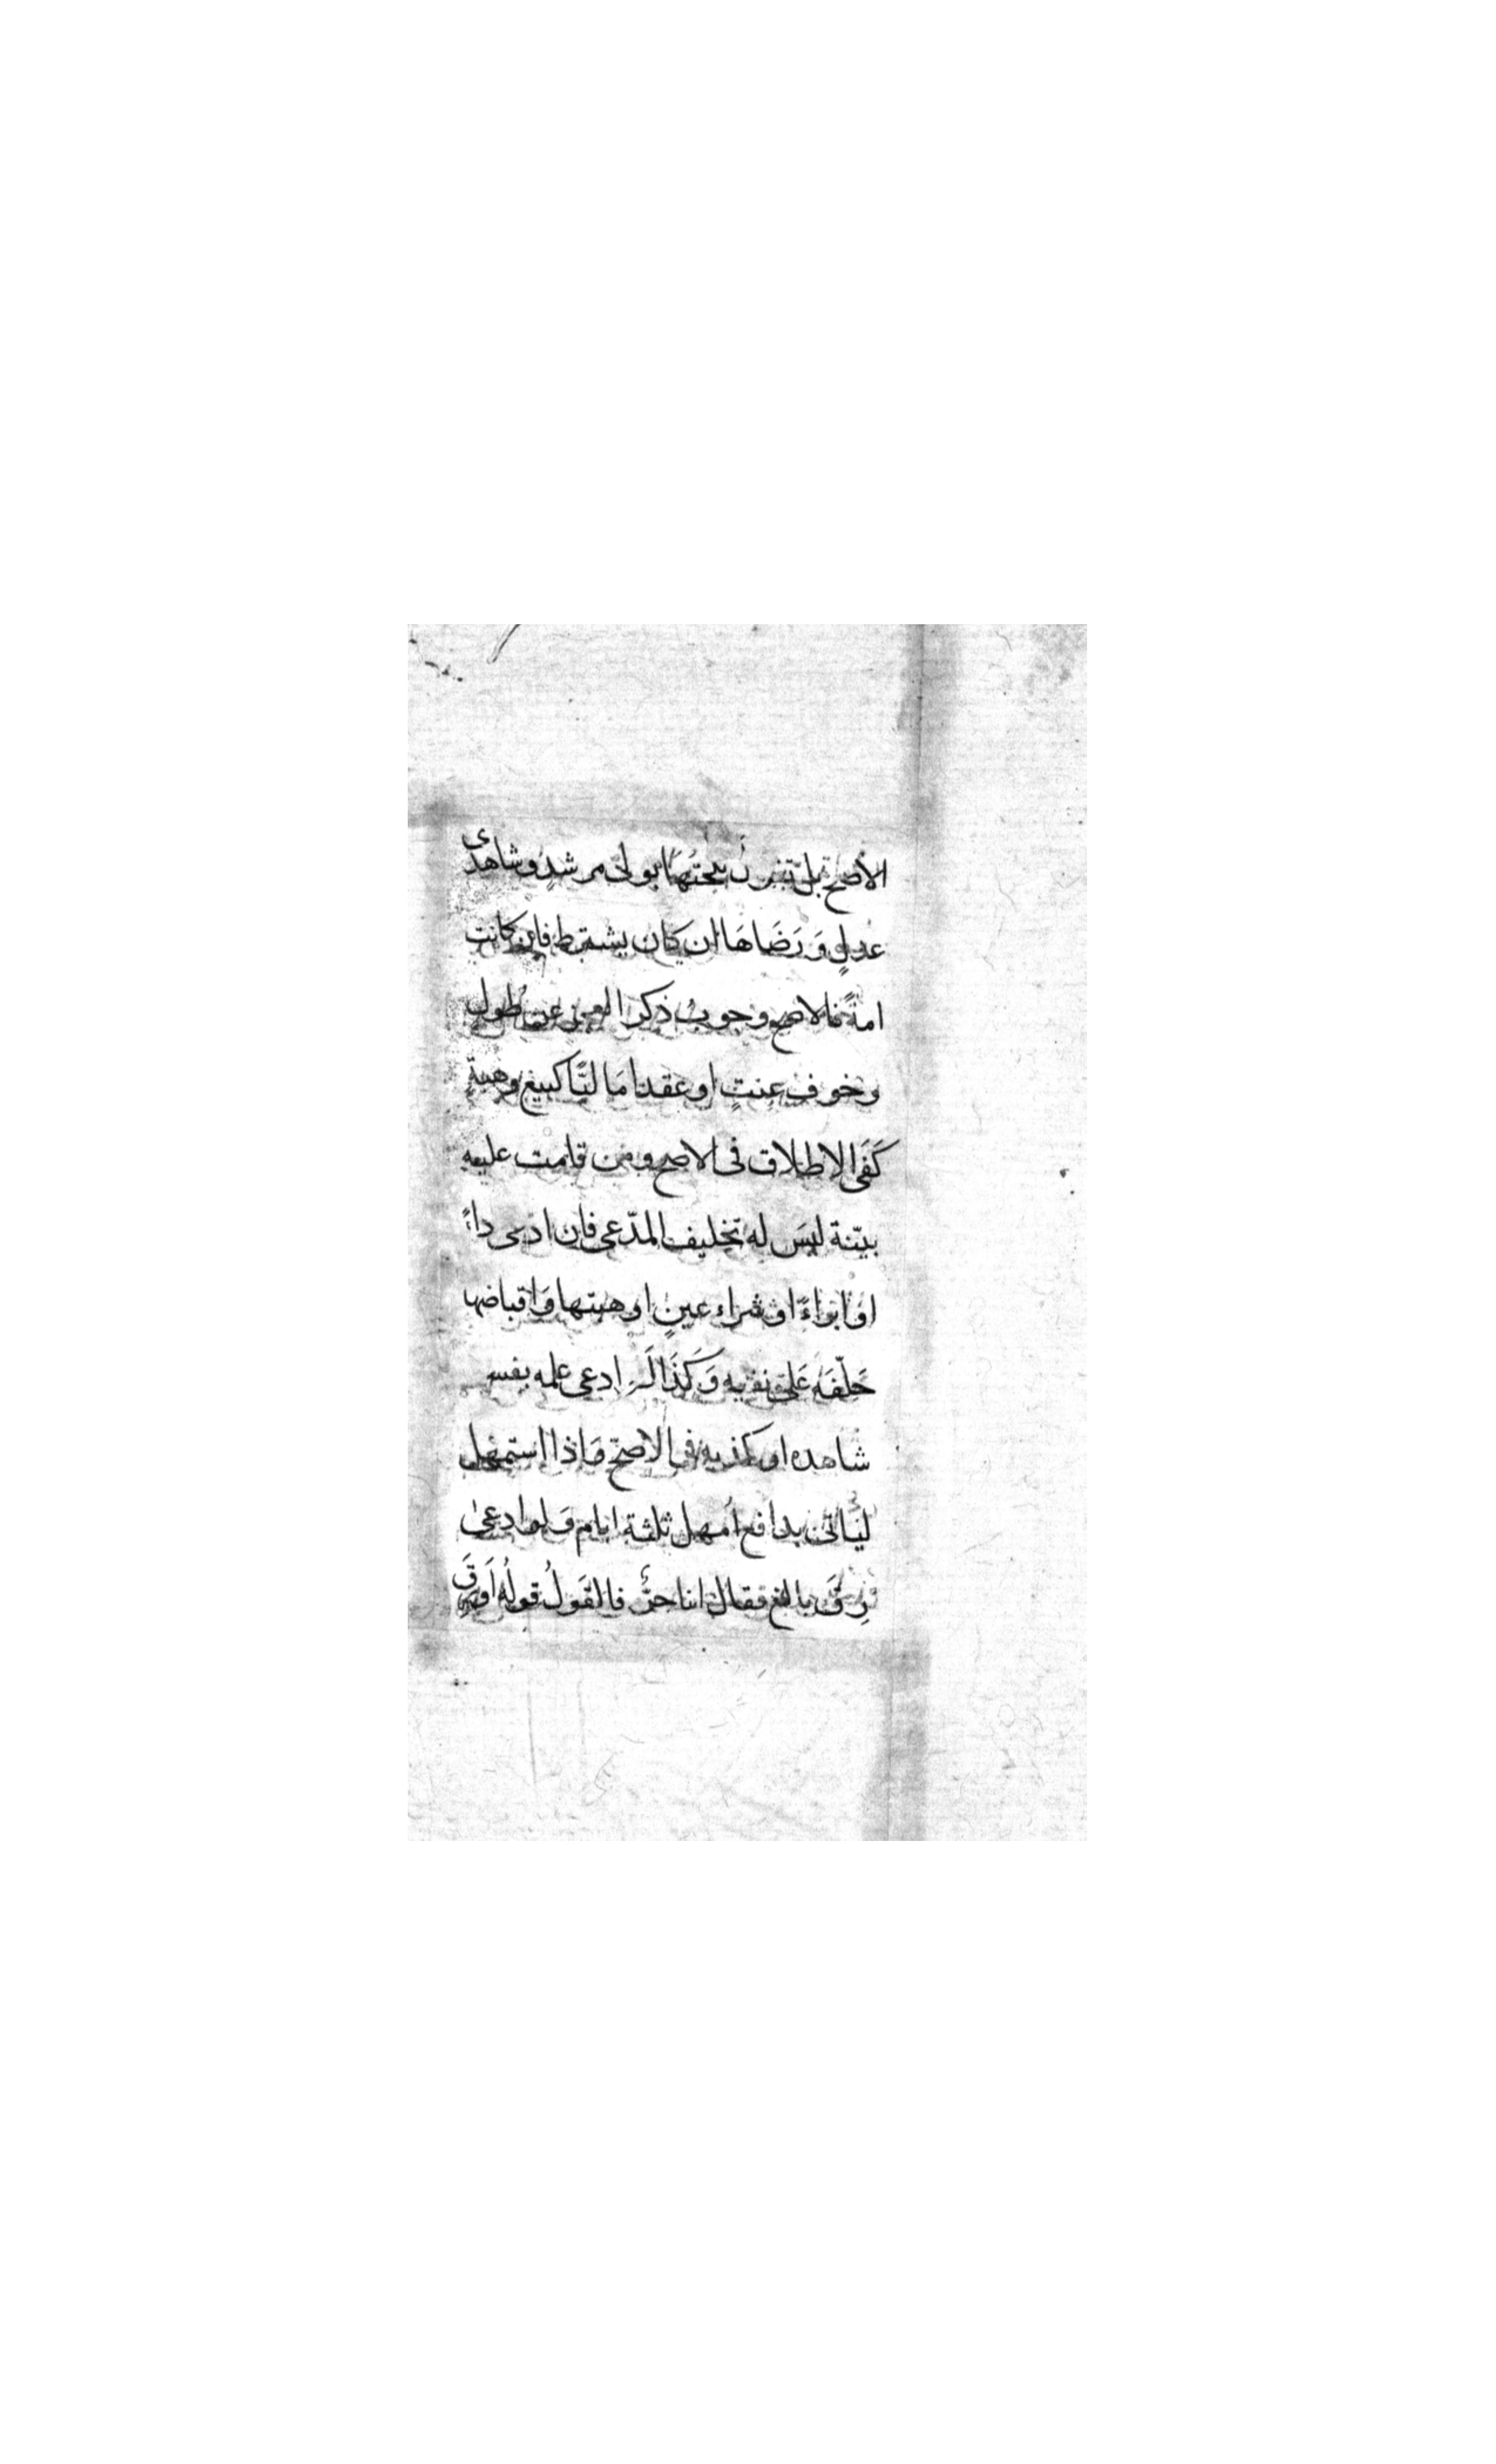 الأصح بل تزوجتها بولي مرشدٍ وشاهدى
عدلٍ وَرَضَاهَا ان كان يشترط فان كانت
امةً فالاصح وجوب ذكر العجز عن طول
وخوف عنتٍ او عقدا مَاليًّا كبيع وهبةٍ
كَفَى الاطلاق فى الاصح ومن قامت عليه
بيّنة ليسَ له تحليف المدّعى فان ادعى داءً
او ابراءً او شراء عينٍ او هبتها وَاقباضها
حَلّفَه عَلى نفيه وَكَذَا لَو ادعى علمه بفسـ
شاهده او كذبه فى الاصحّ وَاذا استمهل
ليَاتى بدافع اُمهل ثلثة ايام وَلو ادعىٰ
رِقَّ بالغ فقال انا حرٌّ فالقَولُ قولُه اَو رِقَّ